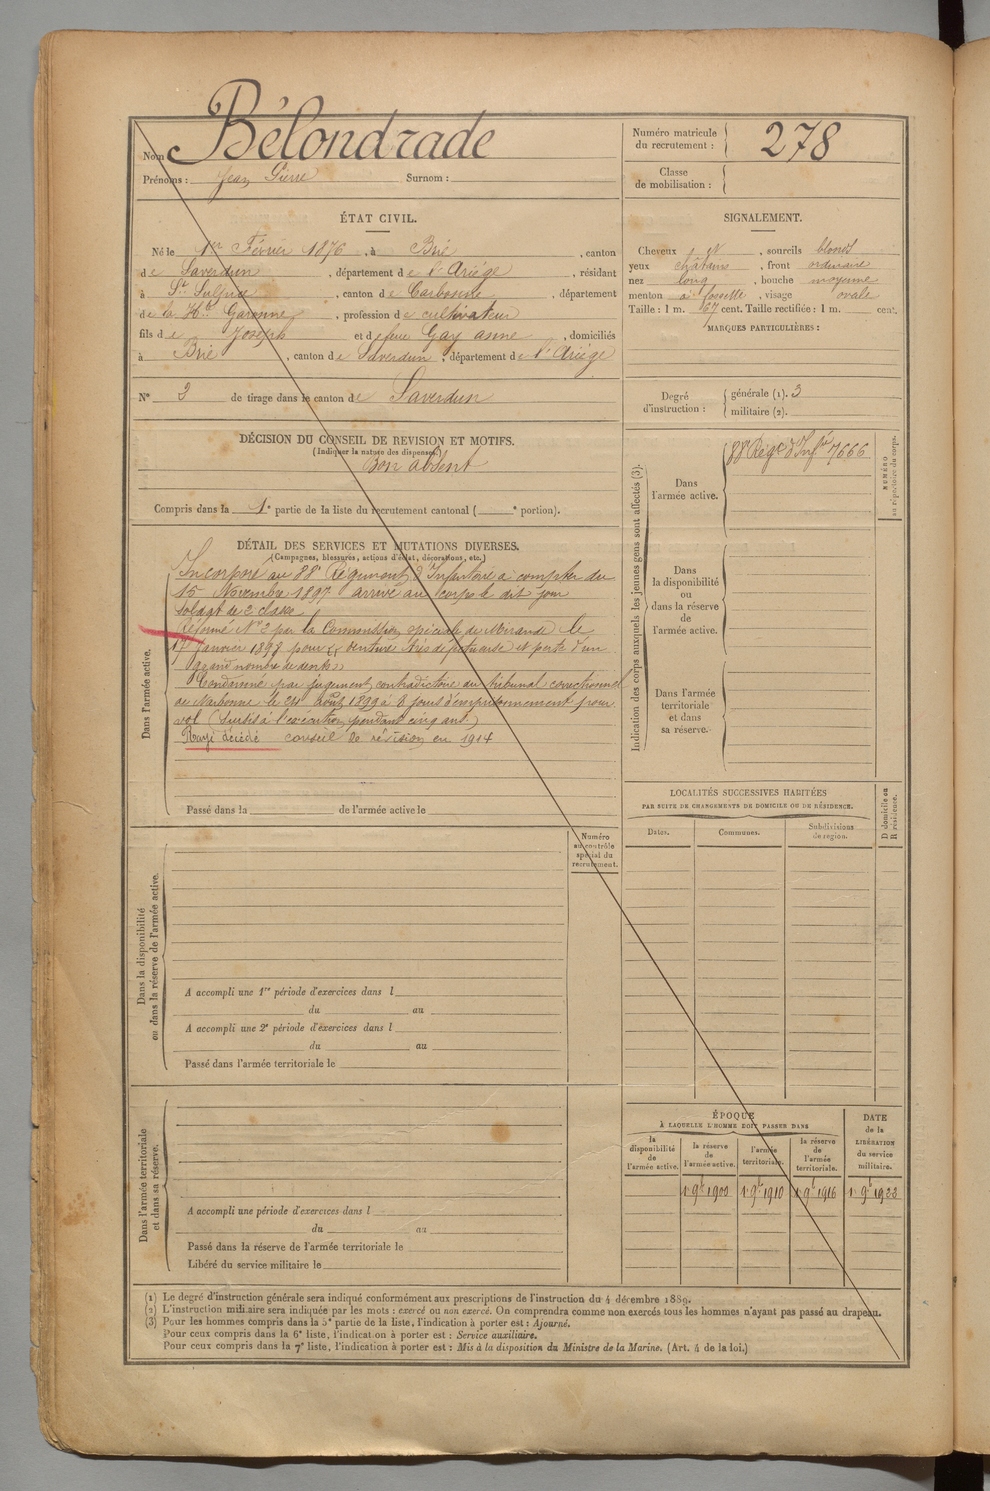 Nom Bélondrade
Prénoms : Jean Pierre Surnom :
Numéro matricule du recrutement : 278
Classe de mobilisation :
ÉTAT CIVIL.
Né le 1er Février 1876, à Brié, canton
de Saverdun, département de l'Ariége, résidant
à St Sulpice, canton de Carbonne, département
de la Hte Garonne, profession de cultivateur
fils de Joseph et de feue Gay anne, domiciliés
à Brié, canton de Saverdun, département de l'Ariége
N° 3 de tirage dans le canton de Saverdun
SIGNALEMENT.
Cheveux N, sourcils blonds
yeux châtains, front ordinaire
nez long, bouche moyenne
menton à fossette, visage ovale
Taille : 1 m. 67 cent. Taille rectifiée : 1 m. cent.
MARQUES PARTICULIÈRES :
Degré d'instruction : générale (1). 3
militaire (2).
DÉCISION DU CONSEIL DE REVISION ET MOTIFS.
(Indiquer la nature des dispenses.)
Bon absent
Compris dans la 1e partie de la liste du recrutement cantonal ( e portion).
DÉTAIL DES SERVICES ET MUTATIONS DIVERSES.
(Campagnes, blessures, actions d'éclat, décorations, etc.)
Dans l'armée active.
Incorporé au 88e Régiment d'Infanterie à compter du
15 Novembre 1897 arrivé au corps le dit jour
soldat de 2 classe.
Réformé N° 2 par la Commission spéciale de Mirande le
Janvier 1898 pour denture très défectueuse et perte d'un
grand nombre de dents
Condamné par jugement contradictoire du tribunal correctionnel
de Narbonne le août 1899 à 8 jours d'emprisonnement pour
vol (Sursis à l'exécution pendant cinq ans)
Rayé décédé conseil de révision en 1914
Passé dans la de l'armée active le
Indication des corps auxquels les jeunes gens sont affectés (3).
NUMÉRO au répertoire du corps.
Dans l'armée active.
88e Régt d'Infie 7666
Dans la disponibilité ou dans la réserve de l'armée active.
Dans l'armée territoriale et dans sa réserve.
LOCALITÉS SUCCESSIVES HABITÉES
PAR SUITE DE CHANGEMENTS DE DOMICILE OU DE RÉSIDENCE.
Dates. Communes. Subdivisions de région. D domicile ou R résidence.
Numéro au contrôle spécial du recrutement.
Dans la disponibilité ou dans la réserve de l'armée active.
A accompli une 1re période d'exercices dans l
du au
A accompli une 2e période d'exercices dans l
du au
Passé dans l'armée territoriale le
Dans l'armée territoriale et dans sa réserve.
A accompli une période d'exercices dans l
du au
Passé dans la réserve de l'armée territoriale le
Libéré du service militaire le
ÉPOQUE
À LAQUELLE L'HOMME DOIT PASSER DANS
la disponibilité de l'armée active.
la réserve de l'armée active.
l'armée territoriale.
la réserve de l'armée territoriale.
DATE de la LIBÉRATION du service militaire.
1r 9b 1900 1r 9b 1910 1r 9b 1916 1r 9b 1922
(1) Le degré d'instruction générale sera indiqué conformément aux prescriptions de l'instruction du 4 décembre 1889.
(2) L'instruction militaire sera indiquée par les mots : exercé ou non exercé. On comprendra comme non exercés tous les hommes n'ayant pas passé au drapeau.
(3) Pour les hommes compris dans la 5e partie de la liste, l'indication à porter est : Ajourné.
Pour ceux compris dans la 6e liste, l'indication à porter est : Service auxiliaire.
Pour ceux compris dans la 7e liste, l'indication à porter est : Mis à la disposition du Ministre de la Marine. (Art. 4 de la loi.)